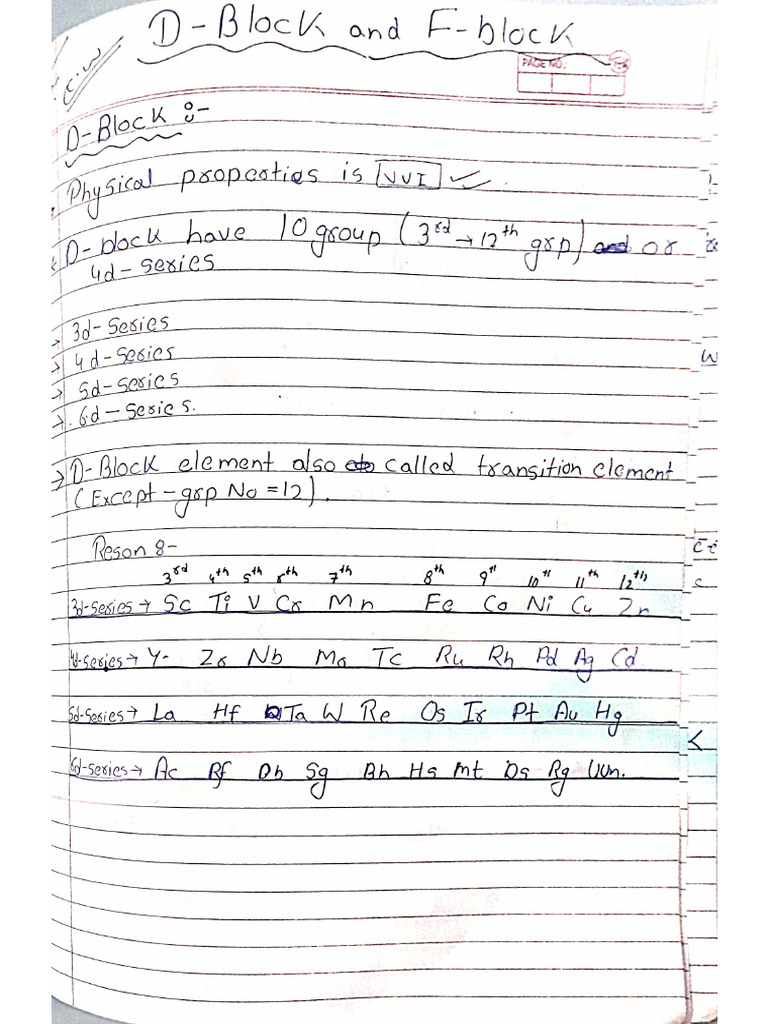 D-Block and F-block
C.W
PAGE NO.:
D-Block :-
Physical properties is VVI
D-block have 10 group (3rd → 12th grp) or
4d-series
→ 3d-Series
→ 4d-Series
→ 5d-Series
→ 6d-Series.
→ D-Block element also called transition element
(Except-grp No =12).
Reson :-
3rd 4th 5th 6th 7th 8th 9th 10th 11th 12th
3d-series → Sc Ti V Cr Mn Fe Co Ni Cu Zn
4d-series → Y- Zr Nb Mo Tc Ru Rh Pd Ag Cd
5d-series → La Hf Ta W Re Os Ir Pt Au Hg
6d-series → Ac Rf Db Sg Bh Hs Mt Ds Rg Uun.